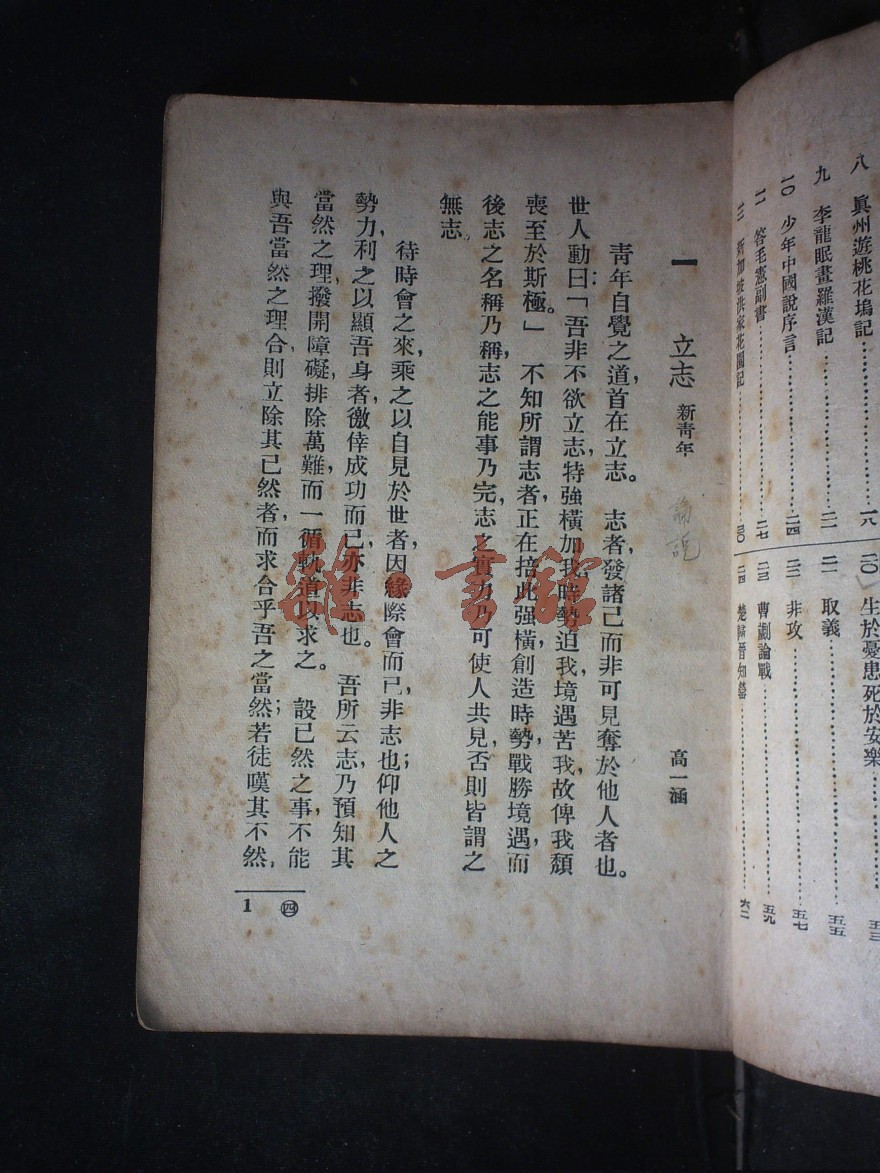 八 眞州遊桃花塢記……一八
九 李龍眠畫羅漢記……二一
一〇 少年中國說序言……二四
一一 答毛憲副書……二七
一二 新加坡洪家花園記……三〇
二〇 生於憂患死於安樂……五三
二一 取義……五五
二二 非攻……五七
二三 曹劌論戰……五九
二四 楚歸晉知罃……六二
一 立志 新靑年 高一涵
論說
靑年自覺之道首在立志。志者,發諸己而非可見奪於他人者也。
世人動曰:「吾非不欲立志,特強橫加我,時勢迫我,境遇苦我,故俾我頹
喪至於斯極。」不知所謂志者,正在掊此强橫,創造時勢,戰勝境遇,而
後志之名稱乃稱,志之能事乃完,志之實力乃可使人共見,否則皆謂之
無志。
待時會之來,乘之以自見於世者,因緣際會而已,非志也;仰他人之
勢力,利之以顯吾身者,徼倖成功而已,亦非志也。吾所云志,乃預知其
當然之理,撥開障礙,排除萬難,而一循軌道以求之。設已然之事,不能
與吾當然之理合,則立除其已然者,而求合乎吾之當然;若徒嘆其不然,
㊃ 1
雜·書館